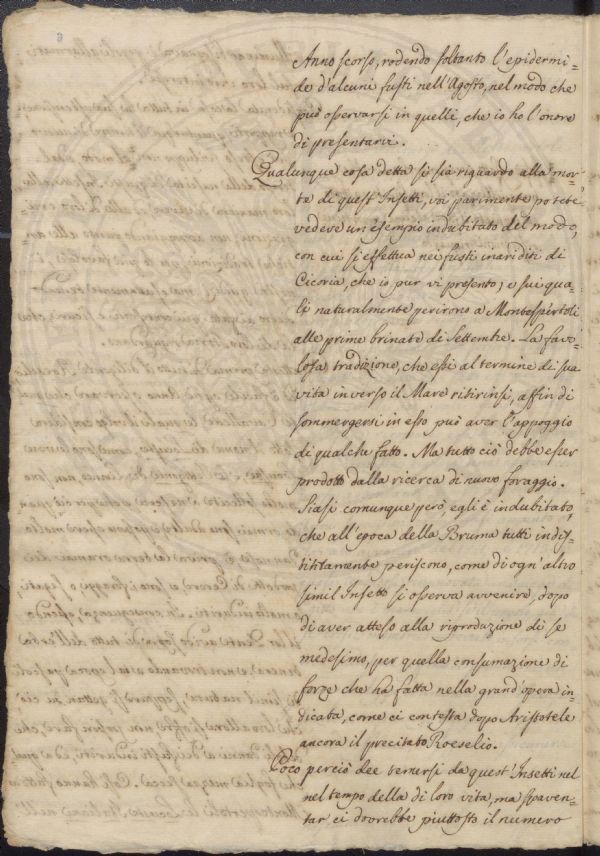 Anno scorso, rodendo soltanto l'epidermi=
de d'alcuni fusti nell'Agosto, nel modo che
può osservarsi in quelli, che io ho l'onore
di presentarvi.
Qualunque cosa detta si sia riguardo alla mor=
te di quest'Insetti, voi parimente potete
vedere un'esempio indubitato del modo,
con cui si effettua nei fusti inariditi di
Cicoria, che io pur vi presento; e sui qua=
li naturalmente perirono a Montespertoli
alle prime brinate di Settembre. La favo=
losa tradizione, che essi al termine di sua
vita inverso il Mare ritirinsi, affin di
sommergersi in esso può aver l'appoggio
di qualche fatto. Ma tutto ciò debbe esser
prodotto dalla ricerca di nuovo foraggio.
Siasi comunque però, egli è indubitato,
che all'epoca della Bruma tutti indis=
tintamente periscono, come di ogn'altro
simil Insetto si osserva avvenire, dopo
di aver atteso alla riproduzione di se
medesimo, per quella consumazione di
forze che ha fatta nella grand'opera in=
dicata, come ci contesta dopo Aristotele
ancora il precitato Roeselio.
Poco perciò dee temersi da quest'Insetti nel
nel tempo della di loro vita, ma spaven=
tar ci dovrebbe piuttosto il numero